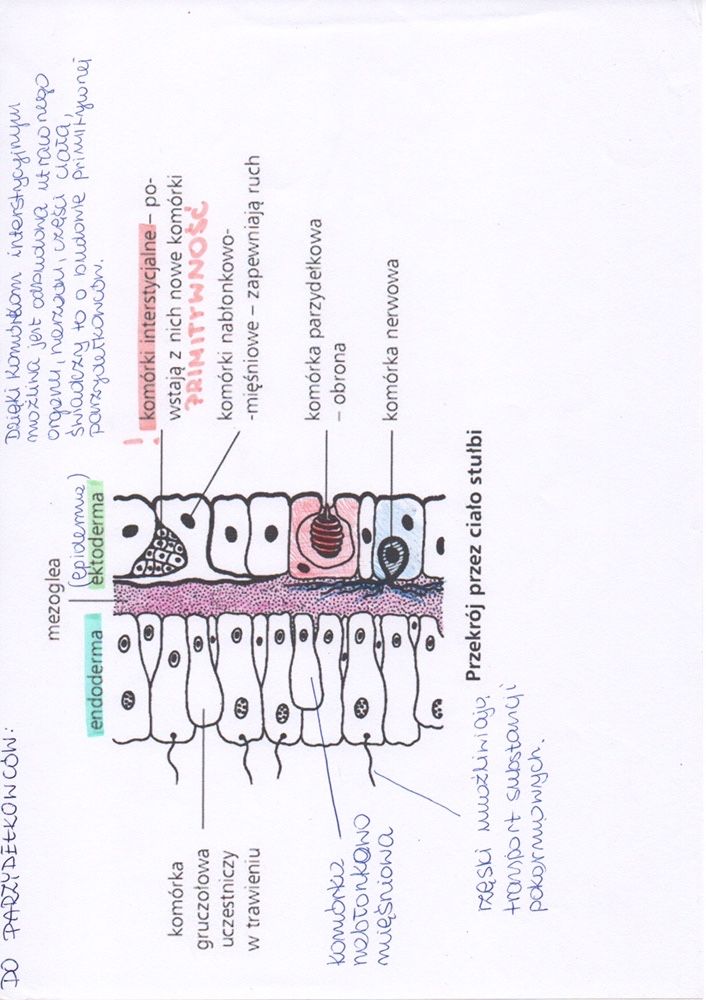 DO PARZYDEŁKOWCÓW:
Dzięki komórkom interstycyjnym
możliwa jest odbudowa utraconego
organu, narządu, części ciała,
świadczy to o budowie prymitywnej
parzydełkowców.
mezoglea
(epidermis)
endoderma
ektoderma
!
komórki interstycjalne – po-
wstają z nich nowe komórki
PRIMITYWNOŚĆ
komórki nabłonkowo-
-mięśniowe – zapewniają ruch
komórka parzydełkowa
– obrona
komórka nerwowa
komórka
gruczołowa
uczestniczy
w trawieniu
komórka
nabłonkowo
mięśniowa
rzęski umożliwiają
transport substancji
pokarmowych.
Przekrój przez ciało stułbi